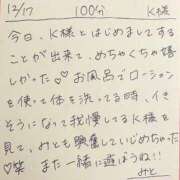 12/17 100分 K様
今日、K様とはじめましてする
ことが出来て、めちゃくちゃ嬉
しかった♡お風呂でローション
を使って体を洗ってる時、イき
そうになって我慢してるK様を
見て、みとも興奮していじめちゃった
♡笑 また一緒に遊ぼうね!!
みと